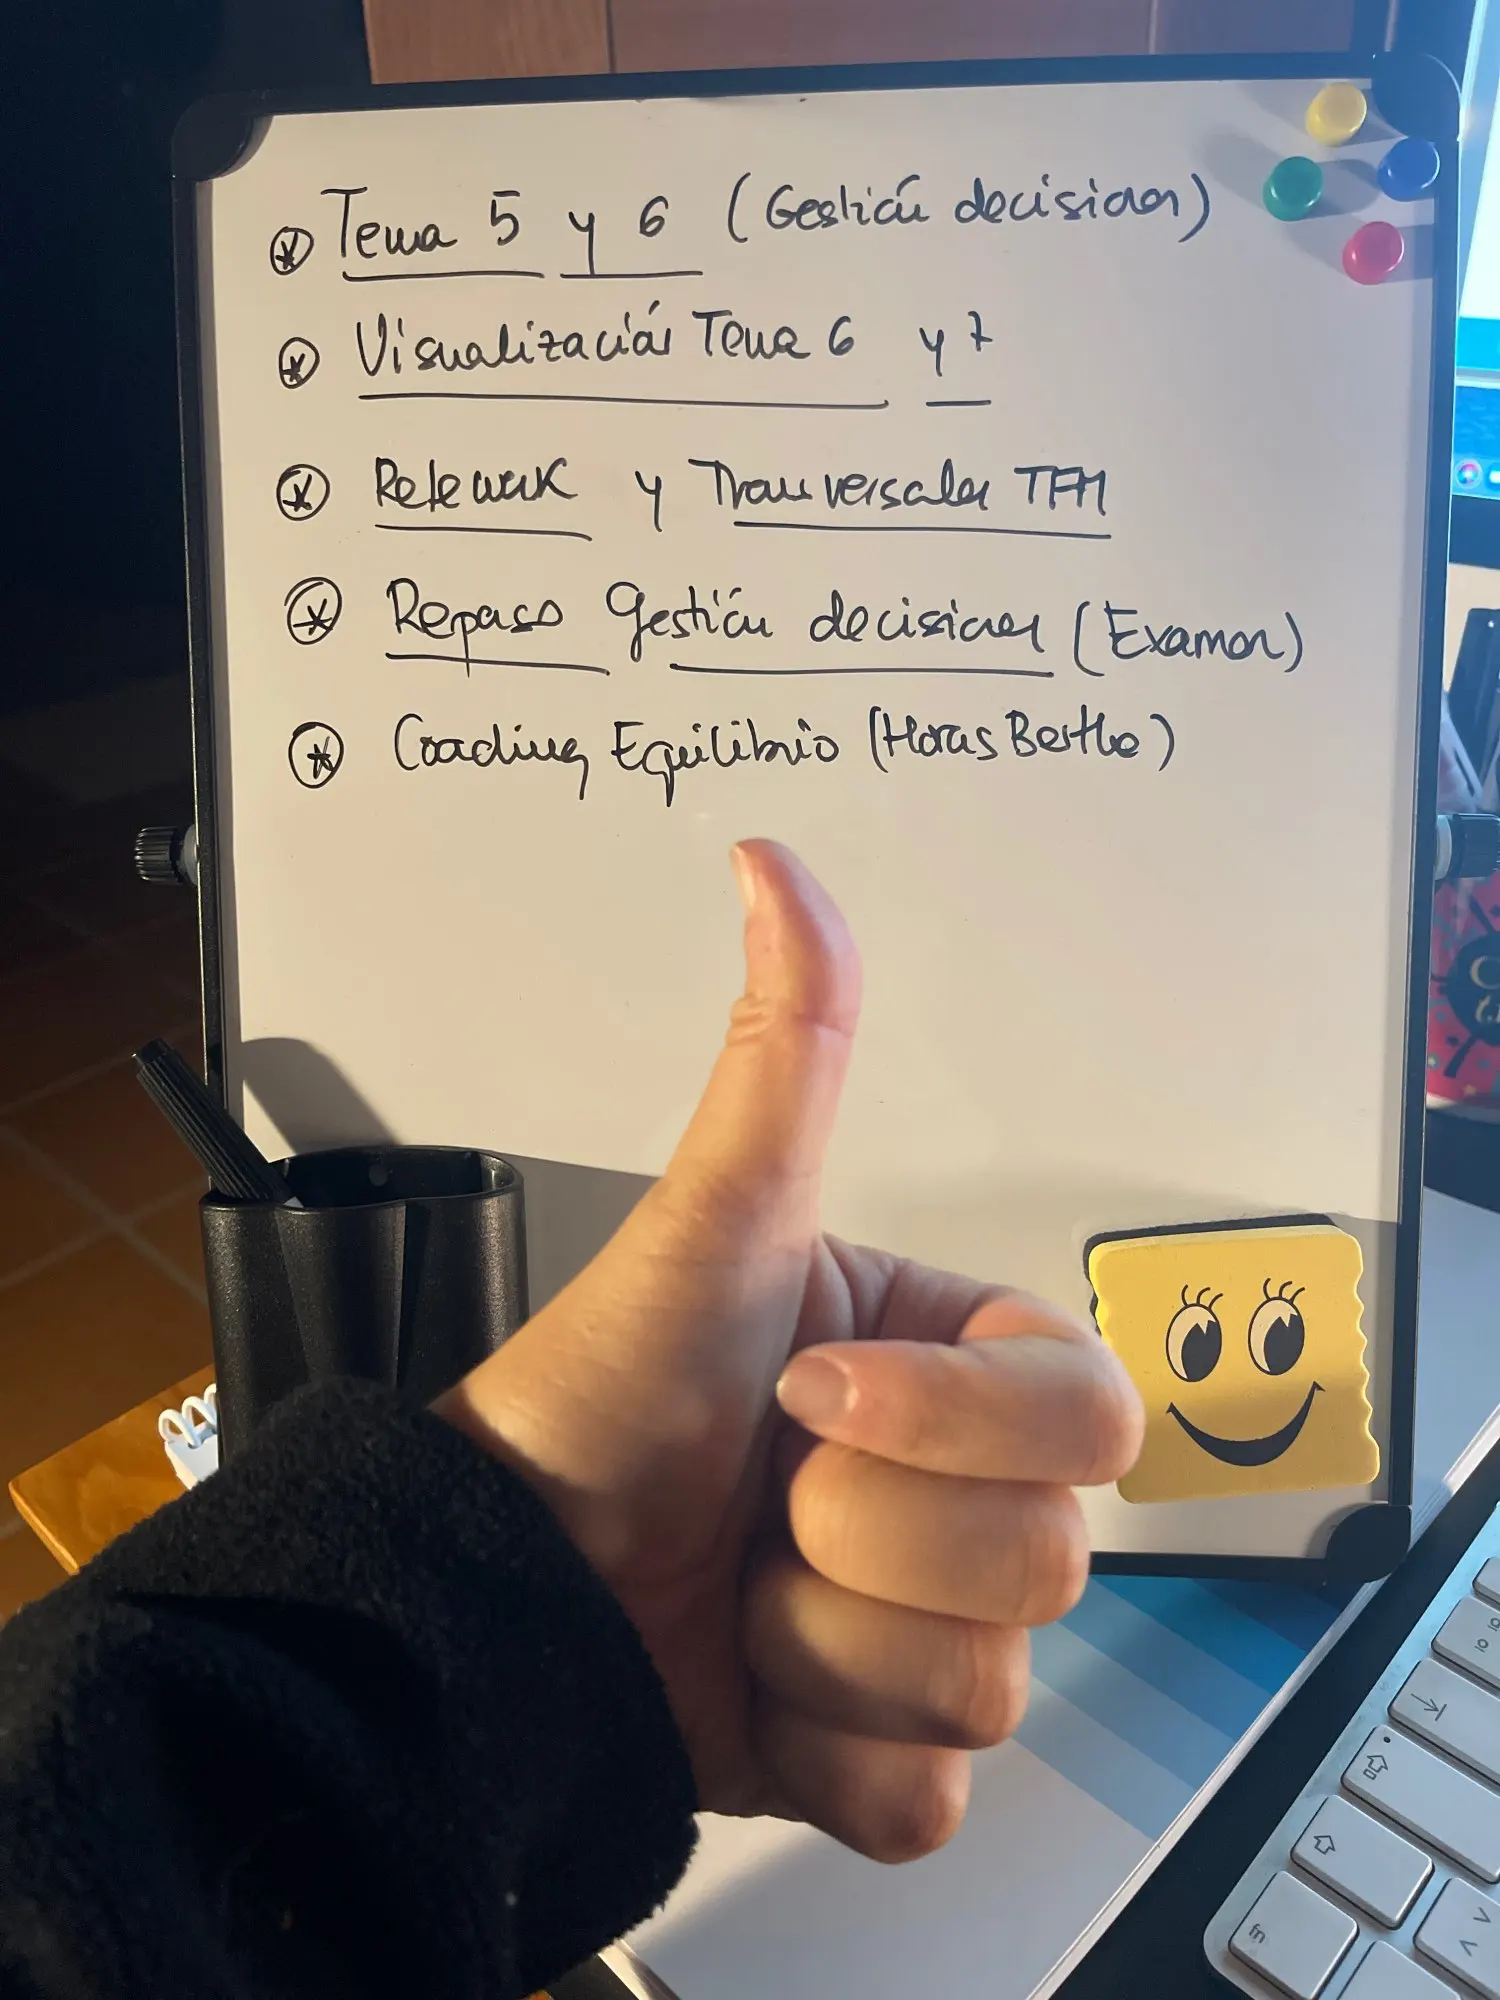 Tema 5 y 6 (Gestión decisiones)
Visualización Tema 6 y 7
y Transversales TFM
Repaso Gestión decisiones (Examen)
Coaching Equilibrio (Horas Berthe)
fn